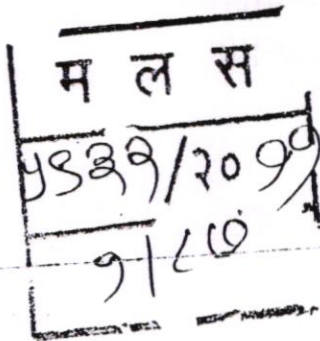 म ल स
५९३२/२०११
१/८७